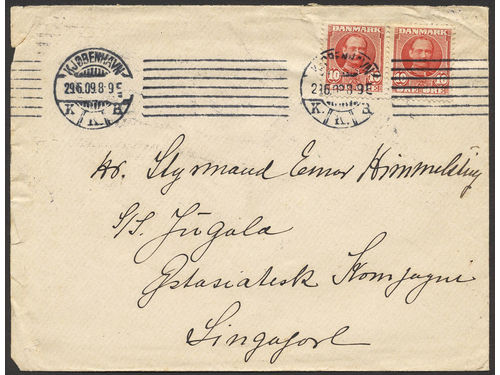 KJØBENHAVN
29.6.09.8-9E
K. K. B
DANMARK
10 10
ØRE ØRE
DANMARK
10 10
ØRE ØRE
KJØBENHAVN
29.6.09.8-9E
K. K. B
Hr. Styrmand Einar Himmelstrup
S/S. Jügala
Østasiatisk Kompagni
Singapore